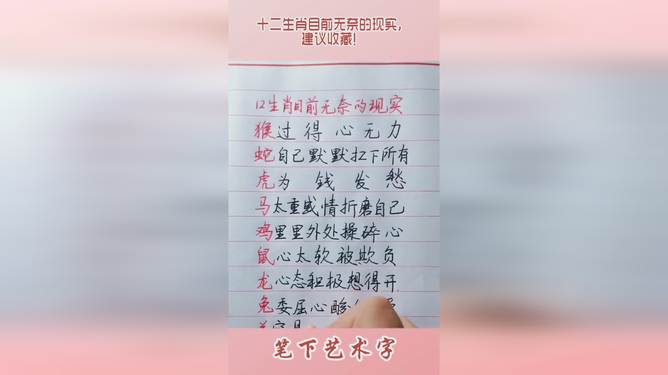 十二生肖目前无奈的现实,
建议收藏!
12生肖目前无奈的现实
猴过得心无力
蛇自己默默扛下所有
虎为钱发愁
马太重感情折磨自己
鸡里里外处操碎心
鼠心太软被欺负
龙心态积极想得开
兔委屈心酸
笔下艺术字